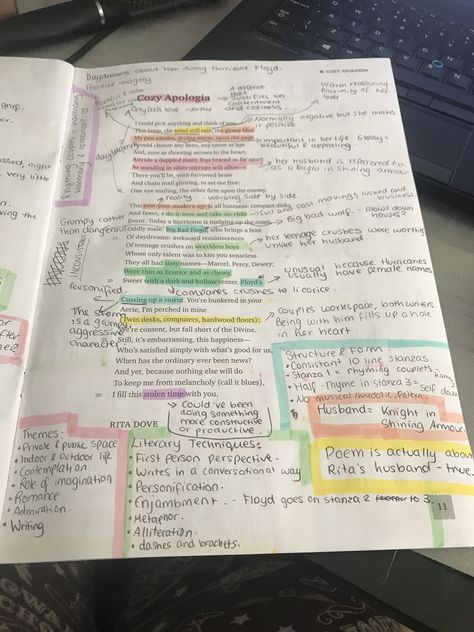 Daydreams about him during Hurricane Floyd.
Positive imagery
COZY APOLOGIA
Cozy Apologia
—for Fred
A defence that justifies her contentment and coziness.
Warm reassuring Proximity of her lover
I could pick anything and think of you—
This lamp, the wind-still rain, the glossy blue
My pen exudes, drying matte, upon the page.
I could choose any hero, any cause or age
And, sure as shooting arrows to the heart,
Astride a dappled mare, legs braced as far apart
As standing in silver stirrups will allow—
There you'll be, with furrowed brow
And chain mail glinting, to set me free:
One eye smiling, the other firm upon the enemy.
Normally negative but she makes it positive
important in her life. Glossy = beautiful & appealing.
her husband is referred to as a knight in shining armour
daydreams
reality - worrying side by side.
This post-post-modern age is all business: compact disks
And faxes, a do-it-now-and-take-no-risks
Event. Today a hurricane is nudging up the coast,
Oddly male: Big Bad Floyd, who brings a host
Of daydreams: awkward reminiscences
Of teenage crushes on worthless boys
Whose only talent was to kiss you senseless.
They all had sissy names—Marcel, Percy, Dewey;
Were thin as licorice and as chewy,
Sweet with a dark and hollow center. Floyd's
Big bad wolf.
her teenage crushes were worthless Unlike her husband.
unusual because Hurricanes usually have female names
compares crushes to licorice.
Grumpy rather than dangerous
Personified.
The storm is a grumpy aggressive character
Cussing up a storm. You're bunkered in your
Aerie, I'm perched in mine
(Twin desks, computers, hardwood floors):
We're content, but fall short of the Divine.
Still, it's embarrassing, this happiness—
Who's satisfied simply with what's good for us,
When has the ordinary ever been news?
And yet, because nothing else will do
To keep me from melancholy (call it blues),
30 I fill this stolen time with you.
Couples workspace, both writers
Being with him fills up a hole in her heart.
Could've been doing something more constructive or productive.
RITA DOVE
Structure & Form
• Consistant 10 line stanzas.
• Stanza 1 = rhyming couplets
• Half-rhyme in stanza 3 =
Husband = Knight in Shining Armour
Poem is actually about Rita's husband - true.
Themes:
• Private & public space
• Indoor & Outdoor life
• Contemplation
• Role of imagination
• Romance
• Admiration.
• Writing
Literary Techniques:
• First person perspective.
• Writes in a conversational way
• Personification.
• Enjambment. - Floyd goes on stanza 2 to 3.
• Metaphor.
• Alliteration.
• dashes and brackets.
11